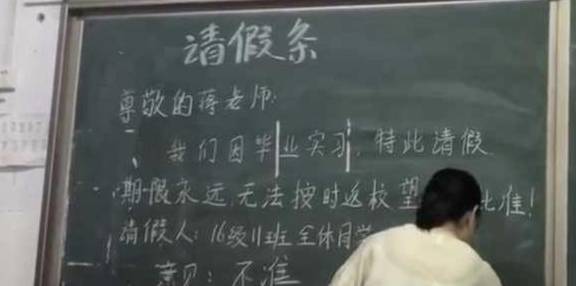 请假条
尊敬的蒋老师:
我们因毕业实习,特此请假
期限永远,无法按时返校望 批准!
请假人:16级11班全体同学
意见:不准